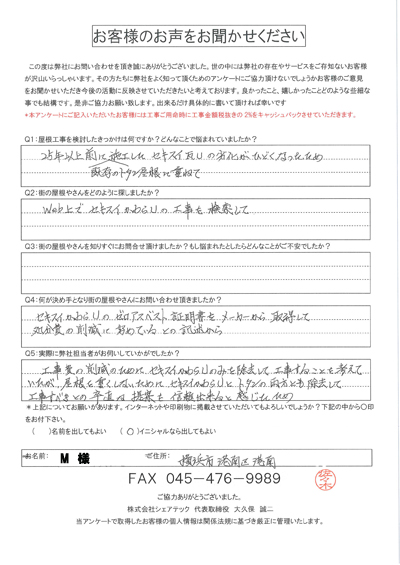 お客様のお声をお聞かせください
この度は弊社にお問い合わせを頂き誠にありがとうございました。世の中には弊社の存在やサービスをご存知ないお客様
が沢山いらっしゃいます。その方たちに弊社をよく知って頂くためのアンケートにご協力頂けないでしょうかお客様のご意見
をお聞かせいただき今後の活動に反映させていただきたいと考えております。良かったこと、嬉しかったことどのような些細な
事でも結構です。是非ご協力お願い致します。出来るだけ具体的に書いて頂ければ幸いです
*本アンケートにご記入いただいたお客様には工事ご用命時に工事金額税抜きの2%をキャッシュバックさせていただきます。
Q1:屋根工事を検討したきっかけは何ですか？どんなことで悩まれていましたか？
25年以上前に施工した セキスイ瓦Uの劣化がひどくなったため
既存のトタン屋根に重ねて
Q2:街の屋根やさんをどのように探しましたか？
Web上で セキスイかわらUの工事を検索して
Q3:街の屋根やさんを知りすぐにお問合せ頂けましたか？もし悩まれたとしたらどんなことがご不安でしたか？
Q4:何が決め手となり街の屋根やさんにお問い合わせ頂きましたか？
セキスイかわらUのゼロアスベスト証明書をメーカーから取得して
処分費の削減に努めているとの記述から
Q5:実際に弊社担当者がお伺いしていかがでしたか？
工事費の削減のために セキスイかわらUのみを除去して工事することを考えて
いたが、屋根を重くしないために セキスイかわらUとトタンの両方とも除去して
工事すべきとの率直な提案を信頼出来ると感じたため
*上記についてお願いがあります。インターネットや印刷物に掲載させていただいてもよろしいでしょうか？下記の中から〇印
をお付下さい。
（　）名前を出してもよい　（〇）イニシャルなら出してもよい
お名前: M 様 ご住所: 横浜市港南区港南
FAX 045-476-9989
佐々木
ご協力ありがとうございました。
株式会社シェアテック 代表取締役 大久保 誠二
当アンケートで取得したお客様の個人情報は関係法規に基づき厳正に管理いたします。